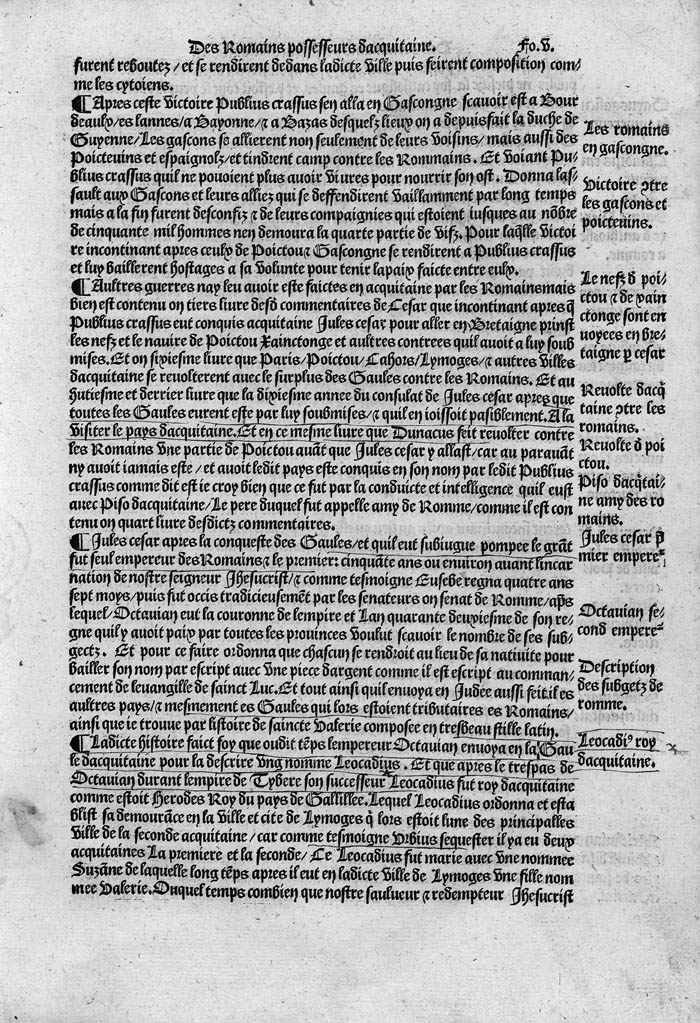 Des Romains possesseurs dacquitaine. Fo.V.
furent reboutez / et se rendirent dedans ladicte ville puis feirent composition com⸗
me les cytoiens.
¶ Apres ceste victoire Publius crassus sen alla en Gascongne scauoir est a Bour
deaulx/es lannes/a Bayonne/⁊ a Bazas desquelz lieux on a depuis fait la duche de
Guyenne/Les gascons se allierent non seulement de leurs voisins/mais aussi des
Poicteuins et espaignolz/et tindrent camp contre les Rommains. Et voiant Pu⸗
blius crassus quil ne pouoient plus auoir viures pour nourrir son ost. Donna las⸗
sault aux Gascons et leurs alliez qui se deffendirent vaillamment par long temps
mais a la fin furent desconfiz ⁊ de leurs compaignies qui estoient iusques au nōbre
de cinquante mil hommes nen demoura la quarte partie de vifz. Pour laq̄lle victoi
re incontinant apres ceulx de Poictou ⁊ Gascongne se rendirent a Publius crassus
et luy baillerent hostages a sa volunte pour tenir la paix faicte entre eulx.
¶ Aultres guerres nay leu auoir este faictes en acquitaine par les Romains mais
bien est contenu on tiers liure desd commentaires de Cesar que incontinant apres q̄
Publius crassus eut conquis acquitaine Jules cesar pour aller en Bretaigne prinst
les nefz et le nauire de Poictou Xainctonge et aultres contrees quil auoit a luy soub
mises. Et on sixiesme liure que Paris/Poictou/Cahors/Lymoges/⁊ autres villes
dacquitaine se reuolterent auec le surplus des Gaules contre les Romains. Et au
hutiesme et derrier liure que la dixiesme annee du consulat de Jules cesar apres que
toutes les Gaules eurent este par luy soubmises/⁊ quil en ioissoit pasiblement. A la
visiter le pays dacquitaine. Et en ce mesme liure que Dunacus feit reuolter contre
les Romains vne partie de Poictou auāt que Jules cesar y allast/car au parauāt
ny auoit iamais este / et auoit ledit pays este conquis en son nom par ledit Publius
crassus comme dit est ie croy bien que ce fut par la conduicte et intelligence quil eust
auec Piso dacquitaine/Le pere duquel fut appelle amy de Romme/comme il est con
tenu on quart liure desdictz commentaires.
¶ Jules cesar apres la conqueste des Gaules/et quil eut subiugue pompee le grāt
fut seul empereur des Romains ⁊ le premier: cinquāte ans ou enuiron auant lincar
nation de nostre seigneur Jhesucrist/⁊ comme tesmoigne Eusebe regna quatre ans
sept moys/puis fut occis tradicieusemēt par les senateurs on senat de Romme/ap̄s
lequel/Octauian eut la couronne de lempire et Lan quarante deuxiesme de son re⸗
gne quil y auoit paix par toutes les prouinces voulut scauoir le nombre de ses sub⸗
gectz. Et pour ce faire ordonna que chascun se rendroit au lieu de sa natiuite pour
bailler son nom par escript auec vne piece dargent comme il est escript au comman⸗
cement de leuangille de sainct Luc. Et tout ainsi quil enuoya en Judee aussi feit il es
aultres pays/⁊ mesmement es Gaules qui lors estoient tributaires es Romains/
ainsi que ie trouue par listoire de saincte Valerie composee en tresbeau stille latin.
¶ Ladicte histoire faict foy que oudit tēps lempereur Octauian enuoya en la Gau
le dacquitaine pour la descrire vng nomme Leocadius. Et que apres le trespas de
Octauian durant lempire de Tybere son successeur Leocadius fut roy dacquitaine
comme estoit Herodes Roy du pays de Gallillee. Lequel Leocadius ordonna et esta
blist sa demourāce en la ville et cite de Lymoges q̄ lors estoit lune des principalles
ville de la seconde acquitaine / car comme tesmoigne Vibius sequester il ya eu deux
acquitaines La premiere et la seconde/ Ce Leocadius fut marie auec vne nommee
Suzāne de laquelle long tēps apres il eut en ladicte ville de Lymoges vne fille nom
mee Valerie. Ouquel temps combien que nostre saulueur ⁊ redempteur Jhesucrist
Les romains
en gascongne.
Victoire ɔtre
les gascons et
poicteuins.
Le nefz d poi⸗
ctou ⁊ de xain
ctonge sont en
uoyees en bre⸗
taigne p cesar
Reuolte dacq̄
taine ɔtre les
romains.
Reuolte d poi
ctou.
Piso dacq̄tai⸗
ne amy des ro
mains.
Jules cesar p
mier empere
Octauian se⸗
cond empere
Description
des subgetz de
romme.
Leocadiꝰ roy
dacquitaine.